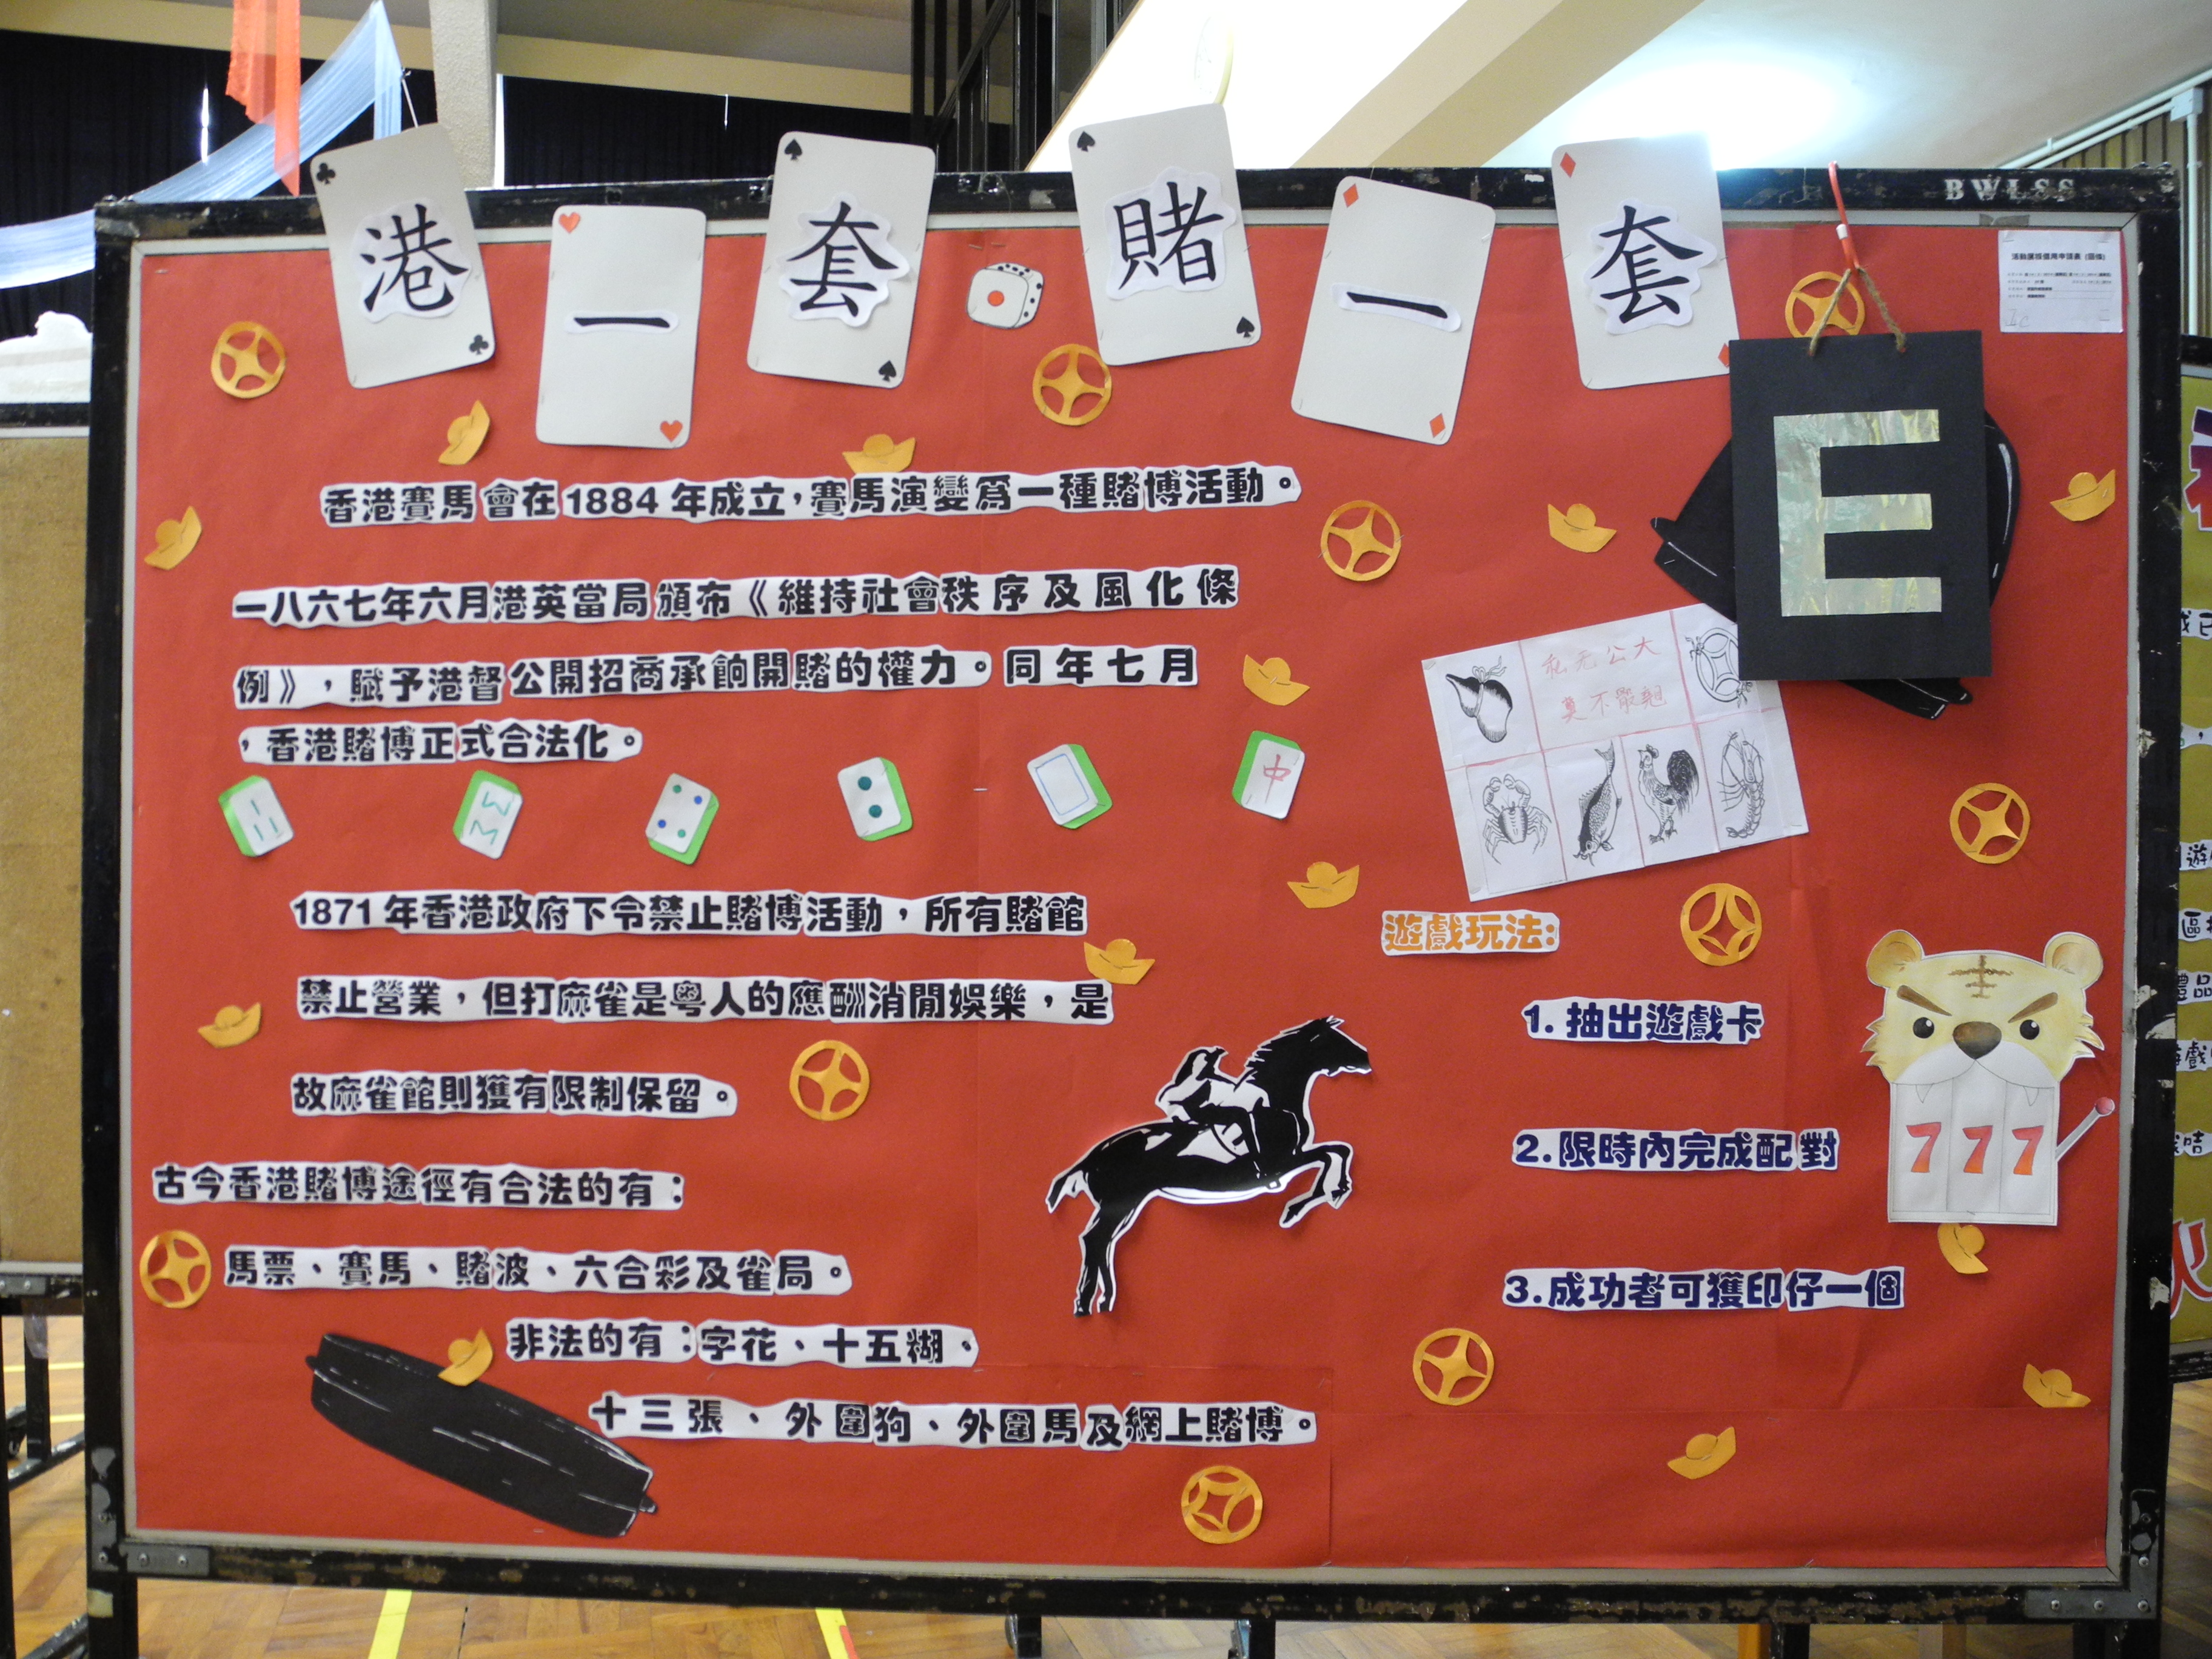 BWLSS
港一套賭一套
活動壁報借用申請表 (回條)
E
香港賽馬會在1884年成立，賽馬演變為一種賭博活動。
一八六七年六月港英當局頒布《維持社會秩序及風化條
例》，賦予港督公開招商承餉開賭的權力。同年七月
，香港賭博正式合法化。
中
1871年香港政府下令禁止賭博活動，所有賭館
禁止營業，但打麻雀是粵人的應酬消閒娛樂，是
故麻雀館則獲有限制保留。
古今香港賭博途徑有合法的有：
馬票、賽馬、賭波、六合彩及雀局。
非法的有：字花、十五糊、
十三張、外圍狗、外圍馬及網上賭博。
私无公大
遊戲玩法:
1. 抽出遊戲卡
2. 限時內完成配對
3.成功者可獲印仔一個
777